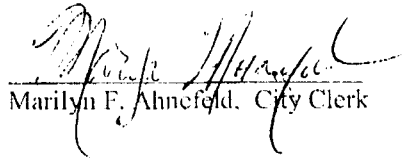 Marilyn F. Ahnefeld, City Clerk